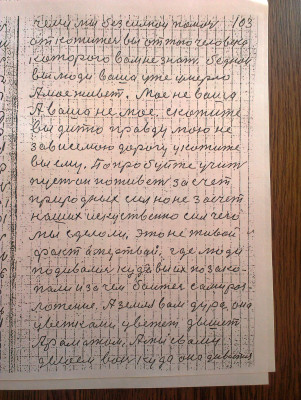 чем мы без силной помочи 103
от кожи же вы от того человека
которого вам не знат бедной
вы люди ваша уже умерло
А мае живет. Мое не ваша
А ваша не мое, скожите
вы дитю правду мою не
зависемою дорогу укожите
вы ему. Попробуйте учит
пуст он поживет за счет
природных сил но не за чет
наших искуственно сил чего
мы сделоли, это не живой
факт а жертвай, где люди
подивалис куда вы их позако-
пали и зачем баитес самираз-
ложения. А земля вам дура, она
цветками цветет дышит
Араматом, А
делаем вон куда она дивается